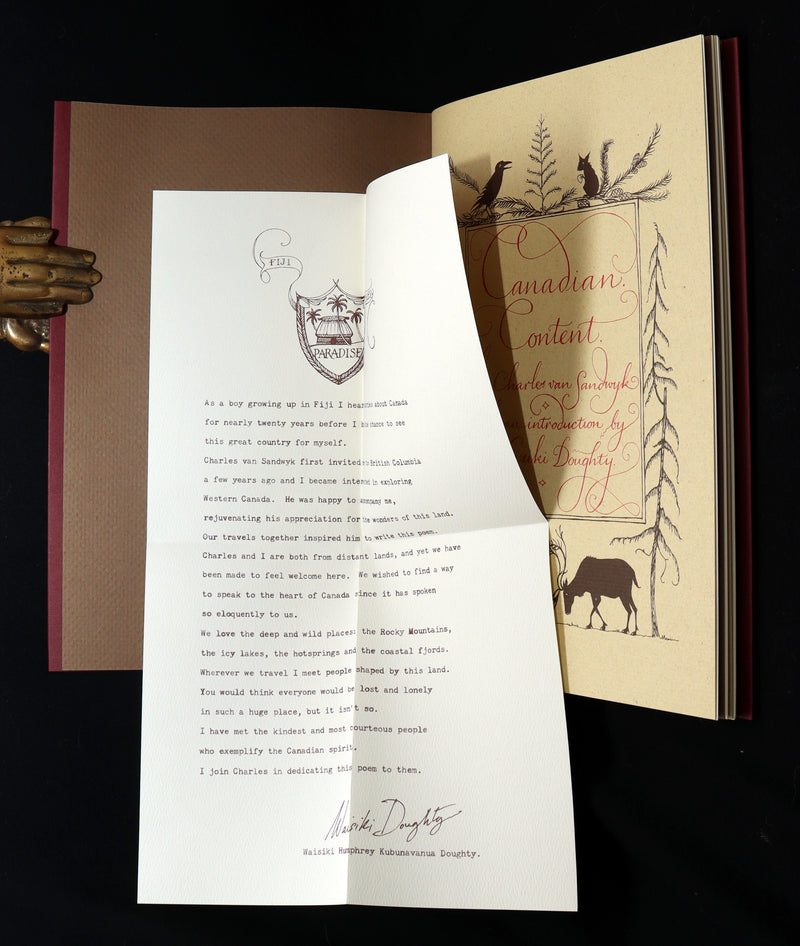 FIJI
PARADISE
As a boy growing up in Fiji I heard stories about Canada
for nearly twenty years before I had the chance to see
this great country for myself.
Charles van Sandwyk first invited me to British Columbia
a few years ago and I became interested in exploring
Western Canada. He was happy to accompany me,
rejuvenating his appreciation for the wonders of this land.
Our travels together inspired him to write this poem.
Charles and I are both from distant lands, and yet we have
been made to feel welcome here. We wished to find a way
to speak to the heart of Canada since it has spoken
so eloquently to us.
We love the deep and wild places: the Rocky Mountains,
the icy lakes, the hotsprings and the coastal fjords.
Wherever we travel I meet people shaped by this land.
You would think everyone would be lost and lonely
in such a huge place, but it isn't so.
I have met the kindest and most courteous people
who exemplify the Canadian spirit.
I join Charles in dedicating this poem to them.
Waisiki Doughty
Waisiki Humphrey Kubunavanua Doughty.
Canadian
Content.
Charles van Sandwyk
introduction by
Doughty.